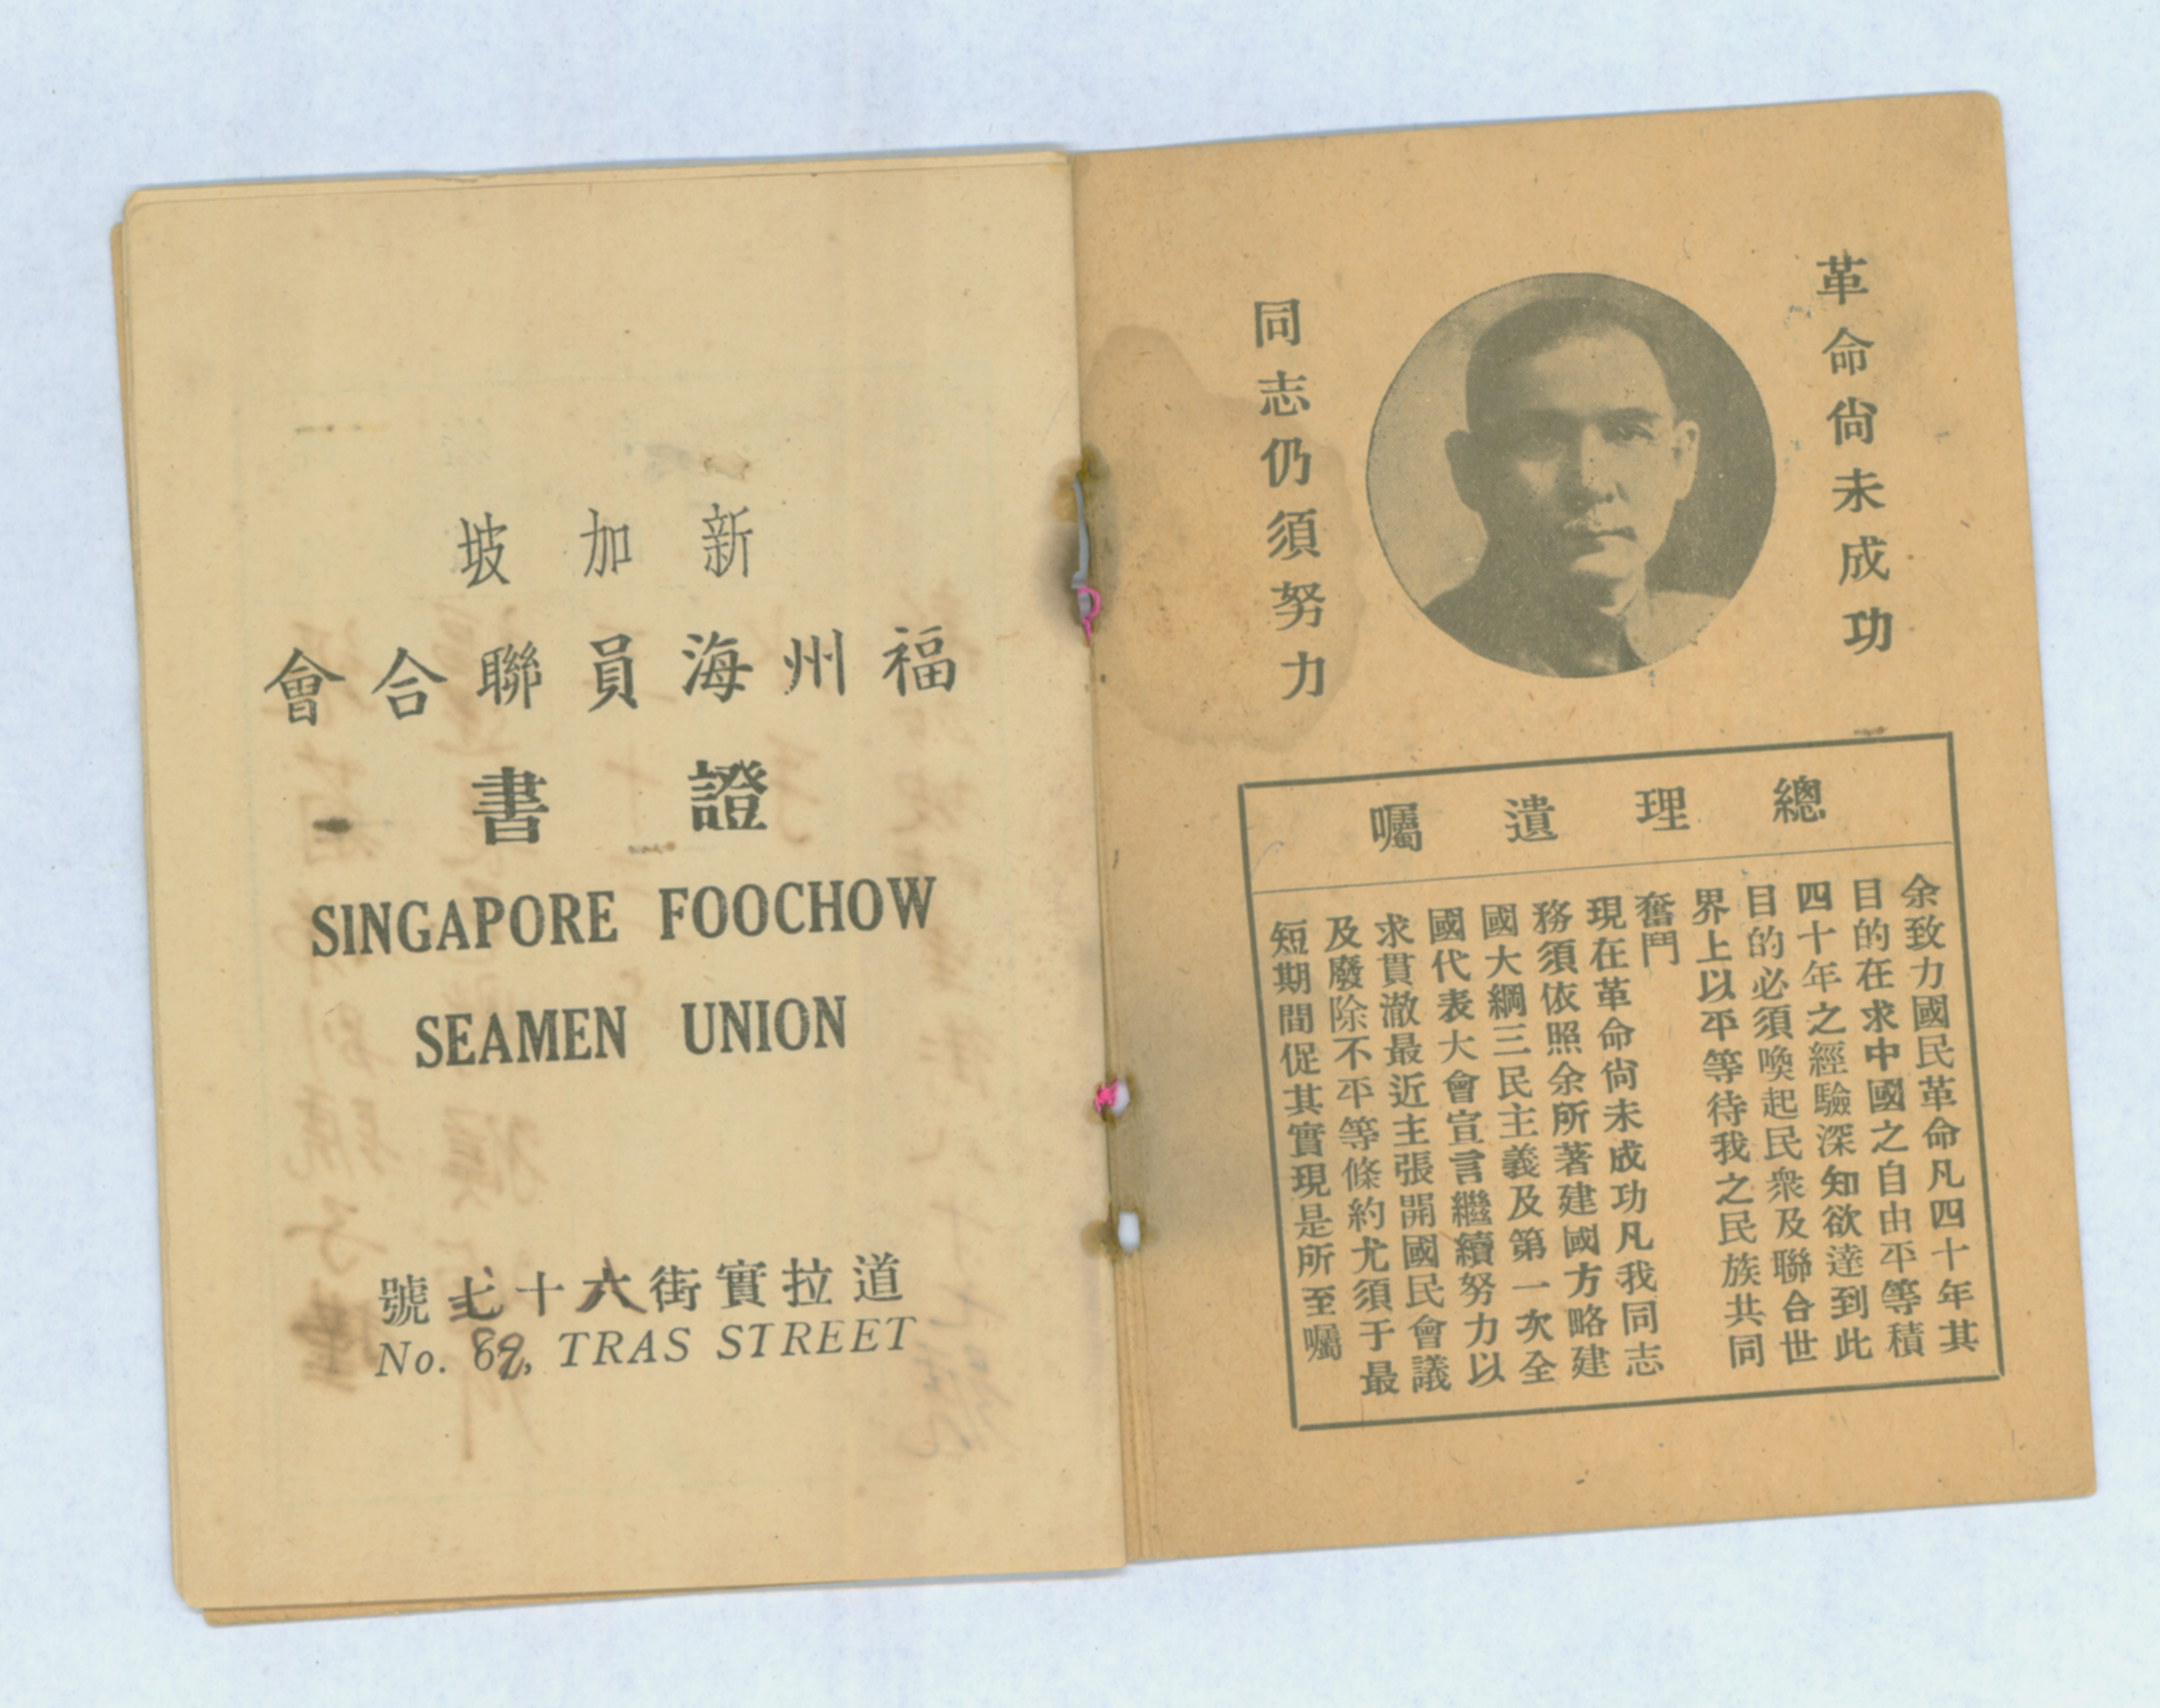 革命尙未成功
同志仍須努力
總理遺囑
余致力國民革命凡四十年其
目的在求中國之自由平等積
四十年之經驗深知欲達到此
目的必須喚起民衆及聯合世
界上以平等待我之民族共同
奮鬥
現在革命尙未成功凡我同志
務須依照余所著建國方略建
國大綱三民主義及第一次全
國代表大會宣言繼續努力以
求貫澈最近主張開國民會議
及廢除不平等條約尤須于最
短期間促其實現是所至囑
新加坡
福州海員聯合會
證書
SINGAPORE FOOCHOW
SEAMEN UNION
道拉實街六十七號
No. TRAS STREET